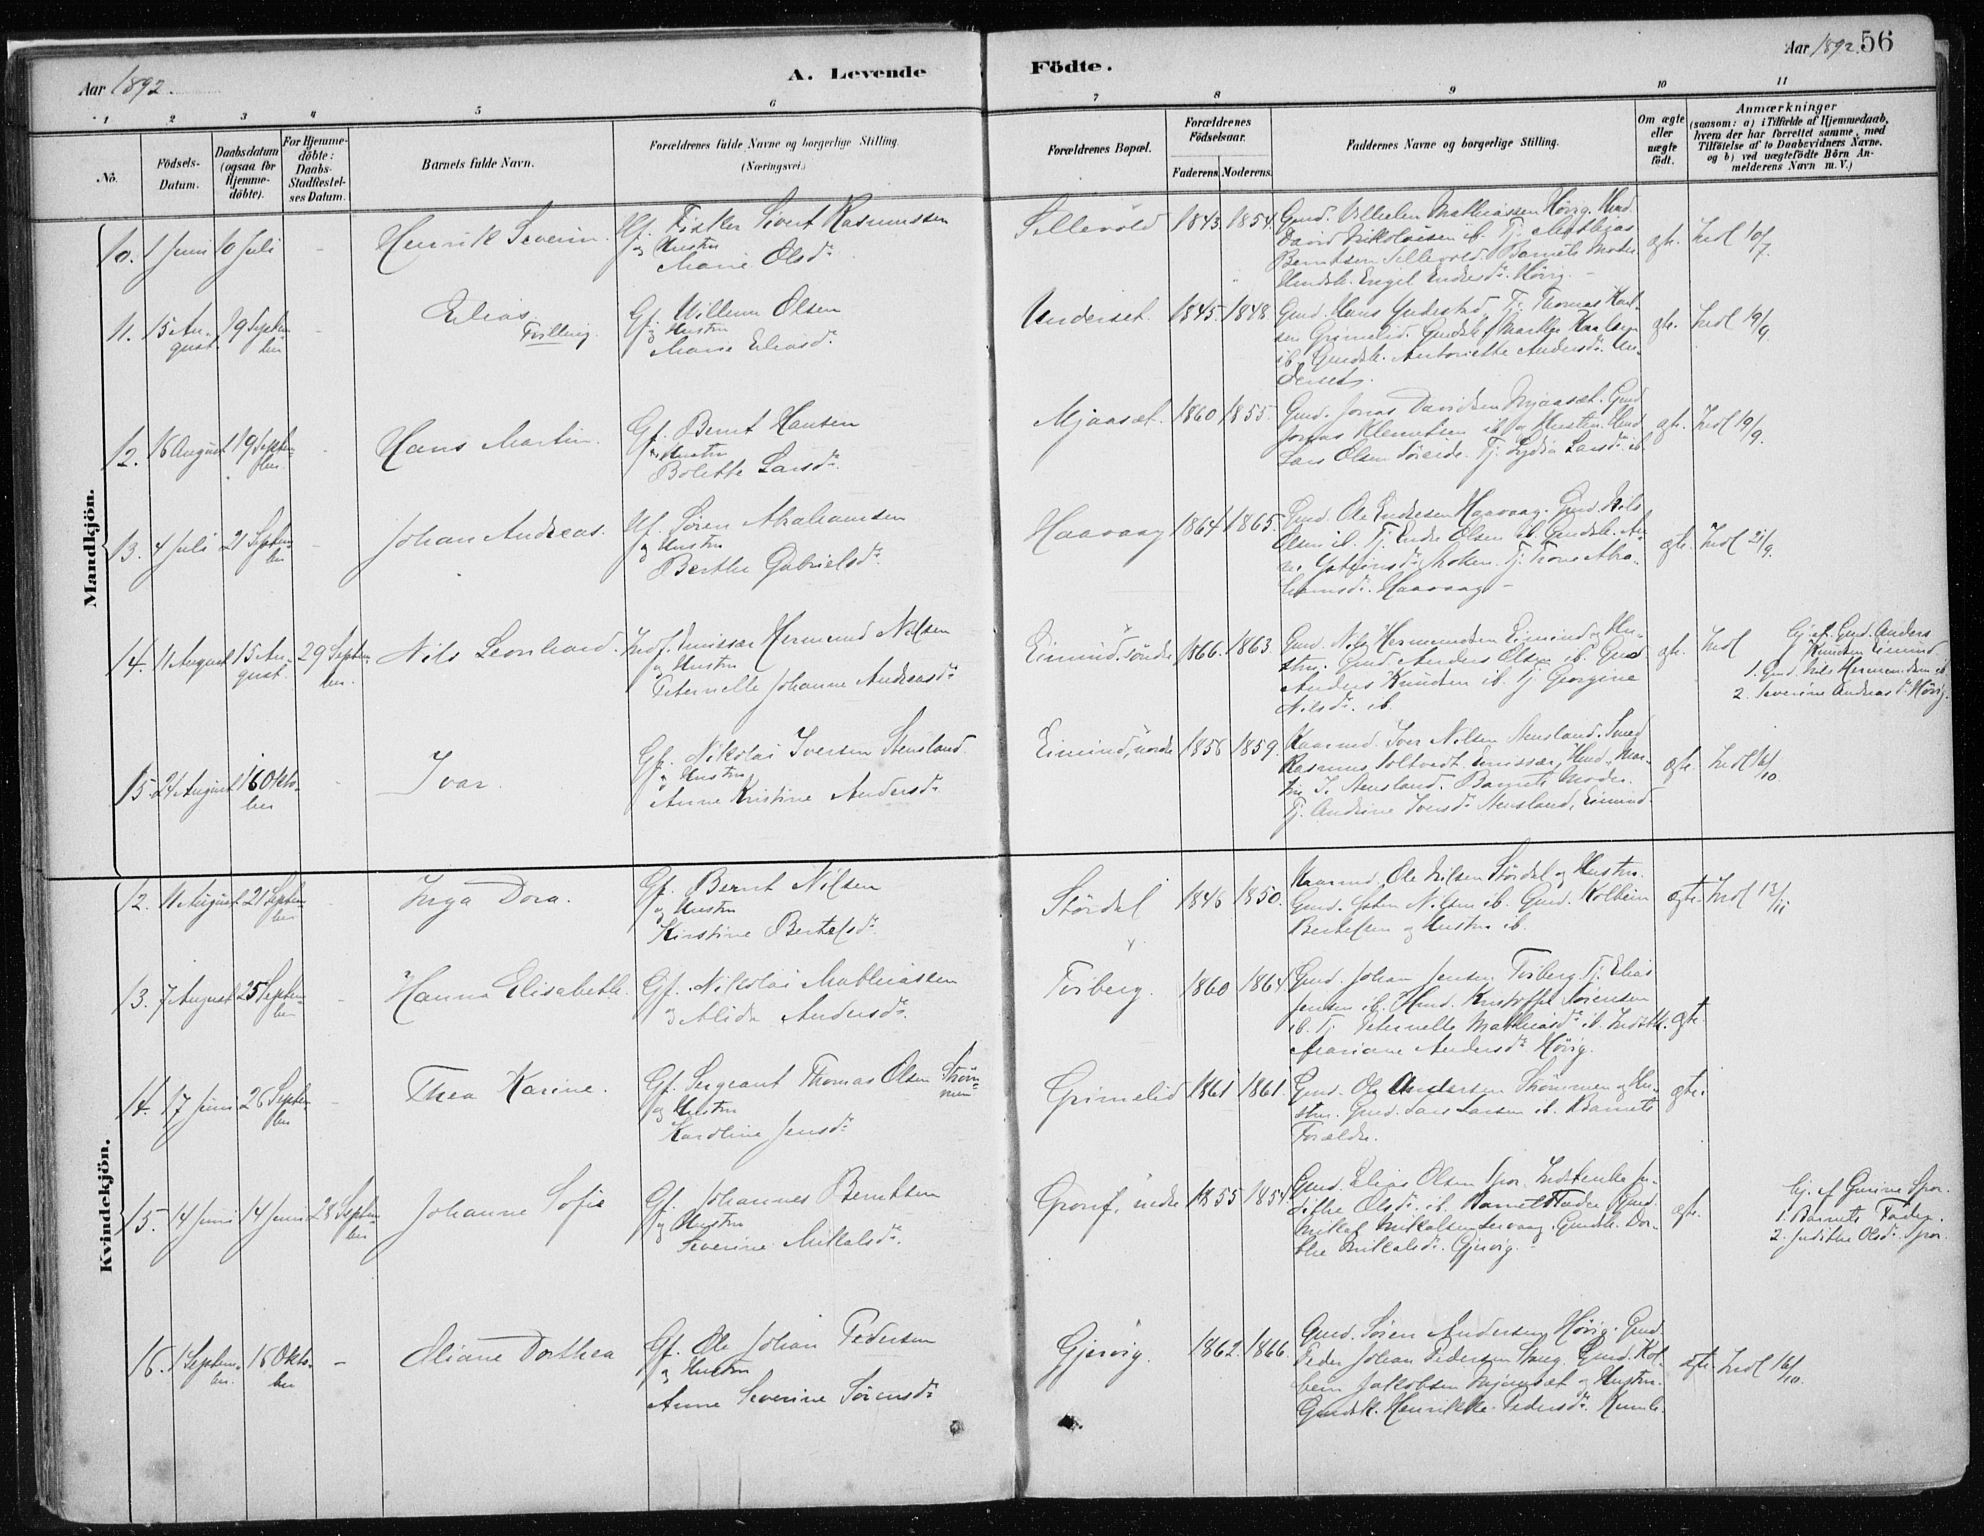 Aar 1892.
A. Levende Födte.
Aar 1892. 56
1 2 3 4 5 6 7 8 9 10 11
No.
Födsels-Datum.
Daabsdatum (ogsaa for Hjemme-döbte).
For Hjemme-döbte: Daabs-Stadfæstel-ses Datum.
Barnets fulde Navn.
Forældrenes fulde Navne og borgerlige Stilling. (Næringsvei.)
Forældrenes Bopæl.
Forældrenes Födselsaar.
Faderens. Moderens.
Faddernes Navne og borgerlige Stilling.
Om ægte eller uægte födt.
Anmærkninger
(saasom: a) i Tilfælde af Hjemmedaab, hvem der har forrettet samme, med Tilföielse af to Daabsvidners Navne. og b) ved uægtefödte Börn An-melderens Navn m. V.)
Mandkjön.
10. 1 Juni 10 Juli - Henrik Severin. Hf. Fisker Sivert Rasmussen
og Hustru
Marie Olsdr
Sellevold 1843. 1854. Gmd. Vilhelm Mathiassen Hövig. Hmd.
David Nikolaisen ib. Tj. Mathias
Berntsen Sellevold. Barnets Moder
Hövig. -
ægte. Indl 10/7.
11. 15 Au-gust. 19 Septem-ber - Elias. Tvilling. Gf. Willem Olsen
og Hustru
Marie Eliasdr
Underset. 1845. 1848. Gmd. Hans Tj. Thomas Karl-
sen Grimelid.
ib. Gmdsk. Antonette Andersdr. Un-
derset.
ægte. Indl 19/9.
12. 16 August 19 Septem-ber. Hans Martin. Gf. Bernt Hansen
og Hustru
Bolette Larsdr
Mjaaset. 1860 1855. Gmd. Jonas Davidsen Mjaaset. Gmd
Jonas Klemetsen ib. og Hustru. Hmd
Lars Olsen Söreide. Tj. Lydia Larsdr ib.
ægte. Indl 19/9.
13. 4 Juli 21 Septem-ber - Johan Andreas. Hf. Sören Abrahamsen
og Hustru
Berthe Gabrielsdr
Haavaag 1864 1865. Gmd. Ole Endresen Haavaag. Gmd. Nils
Olsen ib. Tj. Endre Olsen ib. Gmdsk. An-
Tj. Trone Abra-
hamsdr. Haavaag -
ægte. Indl 21/9.
14. 11 August 15 Au-gust. 29 Septem-ber. Nils Leonhard. Indf. Emissær Hermund Nilsen
og Hustru
Peternelle Johanne Andreasdr
Eimind, söndre 1866. 1863. Gmd. Nils Hermundsen Eimind og Hu-
stru. Gmd. Anders Olsen ib. Gmd
Anders Knudsen ib. Tj. Georgine
Nilsdr. ib.
ægte. Indl
hj. af Gmd. Anders
Knudsen Eimind.
1. Gmd. Nils Hermundsen ib.
2. Severine Andreasdr Hövig.
15. 24 August 16 Okto-ber - Ivar. Gf. Nikolai Iversen Stensland
og Hustru
Anne Kristine Andersdr
Eimind, nordre 1856 1859. Kaarmd. Iver Nilsen Stensland. Smed
Rasmus Soltvedt. Emissær, Hmd. Mar-
tin I. Stensland. Barnets Moder.
Tj. Andrine Iversdr Stensland, Eimind.
ægte. Indl 16/10.
Kvindekjön.
12. 11 August 21 Septem-ber Inga Dora. Gf. Bernt Nilsen
og Hustru
Kirstine Bertelsdr
Stördal 1846 1850. Kaarmd. Ole Nilsen Stördal og Hustru.
Gmd. Nilsen ib. Gmd. Kolbein
Bertelsen og Hustru ib.
ægte. Indl 13/11
13. 7 August 25 Septem-ber - Hanna Elisabeth. Gf. Nikolai Mathiassen
og Alida Andersdr.
Torberg. 1860 1864. Gmd. Johan Jensen Torberg. Tj. Elias
Jensen ib. Hmd. Kristoffel Sörensen
ib. Tj. Peternelle Mathiasdr ib.
Mariane Andersdr Hövig.
ægte.
14. 17 Juni 26 Septem-ber - Thea Karine. Gf. Sergeant Thomas Olsen Ström-men
og Hustru
Karoline Jensdr
Grimelid 1861 1861. Gmd. Ole Andersen Strömmen og Hu-
stru. Gmd. Lars Larsen ib. Barnets
Forældre.
ægte.
15. 14 Juni 14 Juni 28 Septem-ber Johanne Sofie Gf. Johannes Berntsen
og Hustru
Severine Mikalsdr.
Grouf, nedre 1855 1854. Gmd. Elias Olsen Spor. Ju-
dithe Olsdr. ib. Barnets Fader. Gmd.
Mikal Mikalsen Gmdsk. Dor-
the Mikalsdr. Gjervig.
ægte.
hj. af Gurine Spor.
1. Barnets Fader.
2. Judithe Olsdr. Spor.
16. 1 Septem-ber. 16 Okto-ber - Oliane Dorthea Gf. Ole Johan Pedersen
og Hustru
Anne Severine Sörensdr
Gjervig. 1862. 1866. Gmd. Sören Andersen Hövig. Gmd.
Peder Johan Pedersen Gmd. Kol-
bein Jakobsen Mjaaset og Hustru.
Gmdsk. Henrikke Pedersdr.
ægte. Indl 16/10.